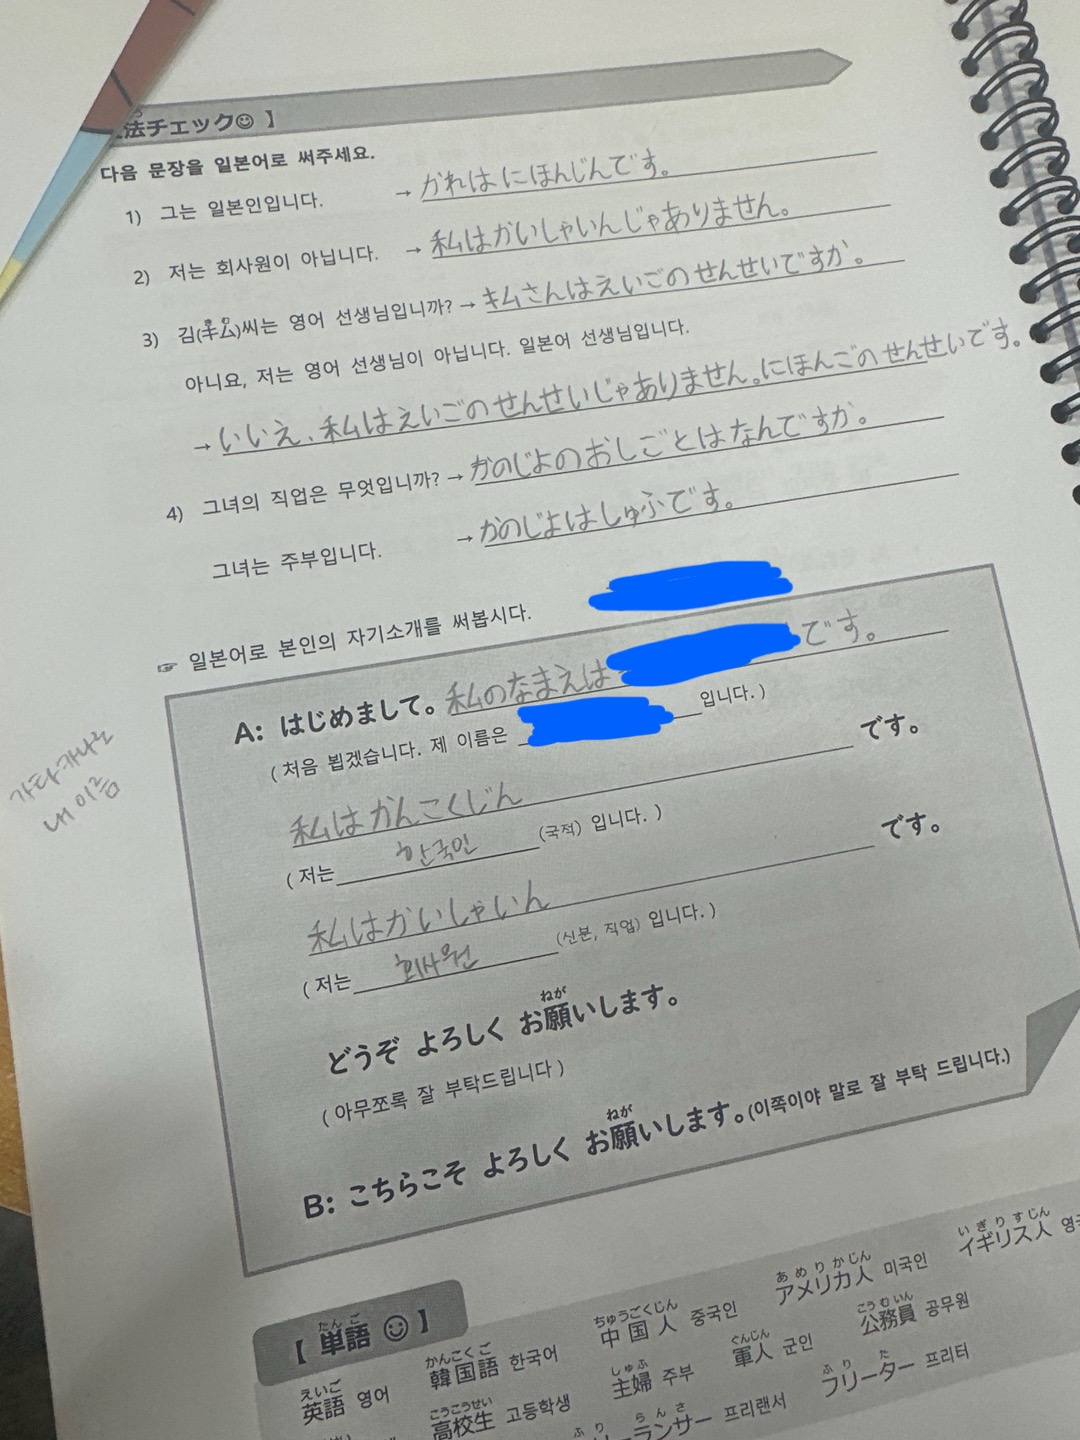 法チェック☺ 】
다음 문장을 일본어로 써주세요.
1) 그는 일본인입니다. → かれはにほんじんです。
2) 저는 회사원이 아닙니다. → 私はかいしゃいんじゃありません。
3) 김(キム)씨는 영어 선생님입니까? → キムさんはえいごのせんせいですか。
아니요, 저는 영어 선생님이 아닙니다. 일본어 선생님입니다.
→ いいえ、私はえいごのせんせいじゃありません。にほんごのせんせいです。
4) 그녀의 직업은 무엇입니까? → かのじよのおしごとはなんですか。
그녀는 주부입니다. → かのじよはしゅふです。
☞ 일본어로 본인의 자기소개를 써봅시다.
A: はじめまして。私のなまえは です。
(처음 뵙겠습니다. 제 이름은 입니다.)
가타카나로
내 이름
私はかんこくじん です。
(저는 한국인 (국적) 입니다.)
私はかいしゃいん です。
(저는 회사원 (신분, 직업) 입니다.)
ねが
どうぞ よろしく お願いします。
(아무쪼록 잘 부탁드립니다)
ねが
B: こちらこそ よろしく お願いします。(이쪽이야 말로 잘 부탁 드립니다.)
たんご
【 単語 ☺ 】
えいご かんこくご ちゅうごくじん あめりかじん いぎりすじん
英語 영어 韓国語 한국어 中国人 중국인 アメリカ人 미국인 イギリス人
こうこうせい しゅふ ぐんじん こうむいん
高校生 고등학생 主婦 주부 軍人 군인 公務員 공무원
ふり らんさ ふりた
ーランサー 프리랜서 フリーター 프리터